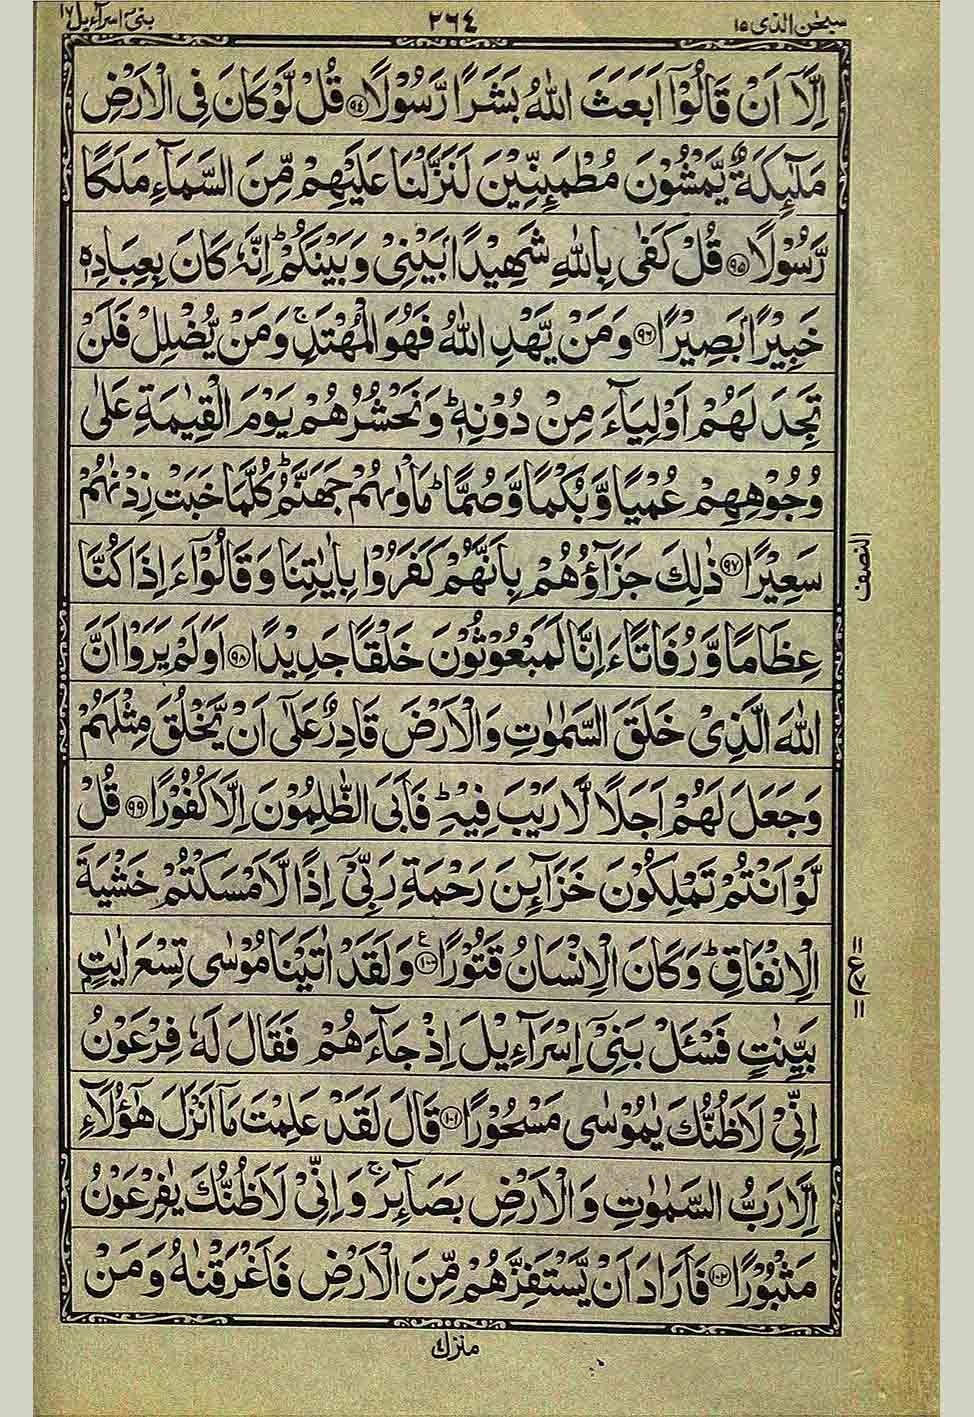 سبحٰن الذی ١٥
٢٦٤
بنیۤ اسرآءیل ١٧
اِلَّاۤ اَنْ قَالُوْۤا اَبَعَثَ اللّٰهُ بَشَرًا رَّسُوْلًا ﴿٩٤﴾ قُلْ لَّوْ كَانَ فِی الْاَرْضِ
مَلٰٓئِكَةٌ یَّمْشُوْنَ مُطْمَئِنِّیْنَ لَنَزَّلْنَا عَلَیْهِمْ مِّنَ السَّمَآءِ مَلَكًا
رَّسُوْلًا ﴿٩٥﴾ قُلْ كَفٰی بِاللّٰهِ شَهِیْدًۢا بَیْنِیْ وَ بَیْنَكُمْ ؕ اِنَّهٗ كَانَ بِعِبَادِهٖ
خَبِیْرًۢا بَصِیْرًا ﴿٩٦﴾ وَ مَنْ یَّهْدِ اللّٰهُ فَهُوَ الْمُهْتَدِ ۚ وَ مَنْ یُّضْلِلْ فَلَنْ
تَجِدَ لَهُمْ اَوْلِیَآءَ مِنْ دُوْنِهٖ ؕ وَ نَحْشُرُهُمْ یَوْمَ الْقِیٰمَةِ عَلٰی
وُجُوْهِهِمْ عُمْیًا وَّ بُكْمًا وَّ صُمًّا ؕ مَاْوٰىهُمْ جَهَنَّمُ ؕ كُلَّمَا خَبَتْ زِدْنٰهُمْ
سَعِیْرًا ﴿٩٧﴾ ذٰلِكَ جَزَآؤُهُمْ بِاَنَّهُمْ كَفَرُوْا بِاٰیٰتِنَا وَ قَالُوْۤا ءَاِذَا كُنَّا
عِظَامًا وَّ رُفَاتًا ءَاِنَّا لَمَبْعُوْثُوْنَ خَلْقًا جَدِیْدًا ﴿٩٨﴾ اَوَ لَمْ یَرَوْا اَنَّ
اللّٰهَ الَّذِیْ خَلَقَ السَّمٰوٰتِ وَ الْاَرْضَ قَادِرٌ عَلٰۤی اَنْ یَّخْلُقَ مِثْلَهُمْ
وَ جَعَلَ لَهُمْ اَجَلًا لَّا رَیْبَ فِیْهِ ؕ فَاَبَی الظّٰلِمُوْنَ اِلَّا كُفُوْرًا ﴿٩٩﴾ قُلْ
لَّوْ اَنْتُمْ تَمْلِكُوْنَ خَزَآئِنَ رَحْمَةِ رَبِّیْۤ اِذًا لَّاَمْسَكْتُمْ خَشْیَةَ
الْاِنْفَاقِ ؕ وَ كَانَ الْاِنْسَانُ قَتُوْرًا ﴿١٠٠﴾ وَ لَقَدْ اٰتَیْنَا مُوْسٰی تِسْعَ اٰیٰتٍۭ
بَیِّنٰتٍ فَسْـَٔلْ بَنِیْۤ اِسْرَآءِیْلَ اِذْ جَآءَهُمْ فَقَالَ لَهٗ فِرْعَوْنُ
اِنِّیْ لَاَظُنُّكَ یٰمُوْسٰی مَسْحُوْرًا ﴿١٠١﴾ قَالَ لَقَدْ عَلِمْتَ مَاۤ اَنْزَلَ هٰۤؤُلَآءِ
اِلَّا رَبُّ السَّمٰوٰتِ وَ الْاَرْضِ بَصَآئِرَ ۚ وَ اِنِّیْ لَاَظُنُّكَ یٰفِرْعَوْنُ
مَثْبُوْرًا ﴿١٠٢﴾ فَاَرَادَ اَنْ یَّسْتَفِزَّهُمْ مِّنَ الْاَرْضِ فَاَغْرَقْنٰهُ وَ مَنْ
النصف
منزل ٤